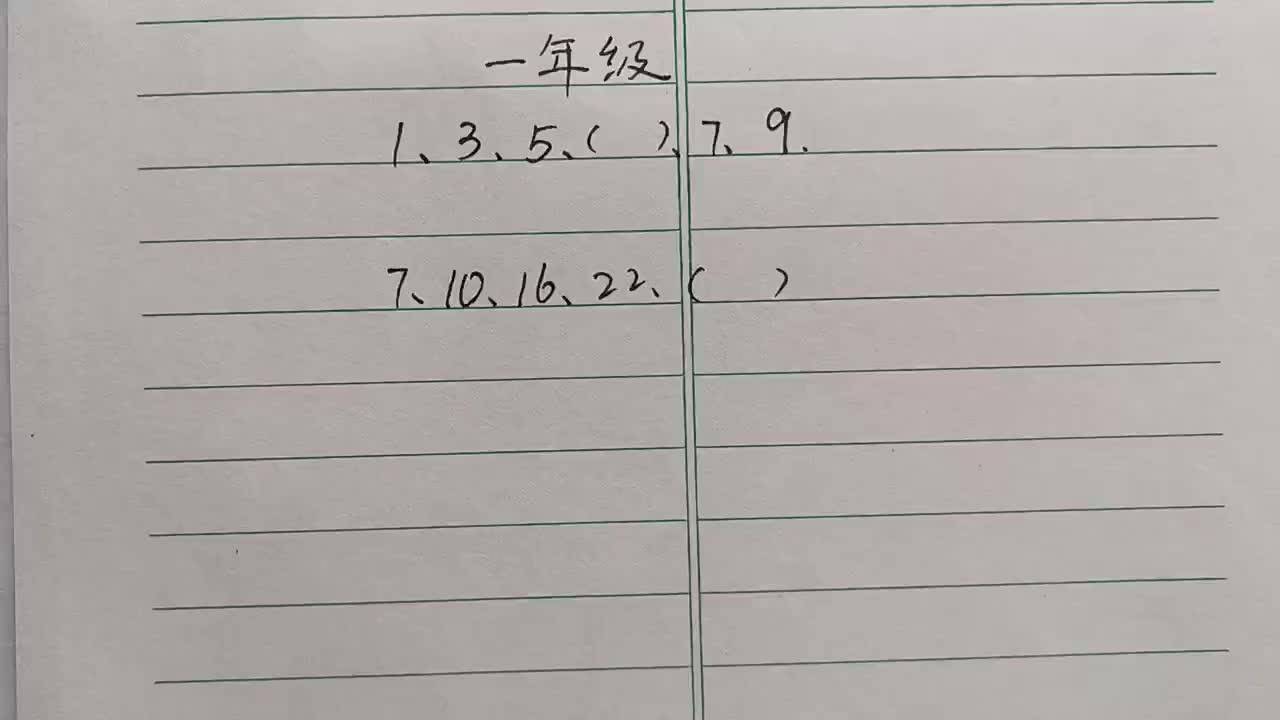 一年级
1、3、5、( )、7、9.
7、10、16、22、( )